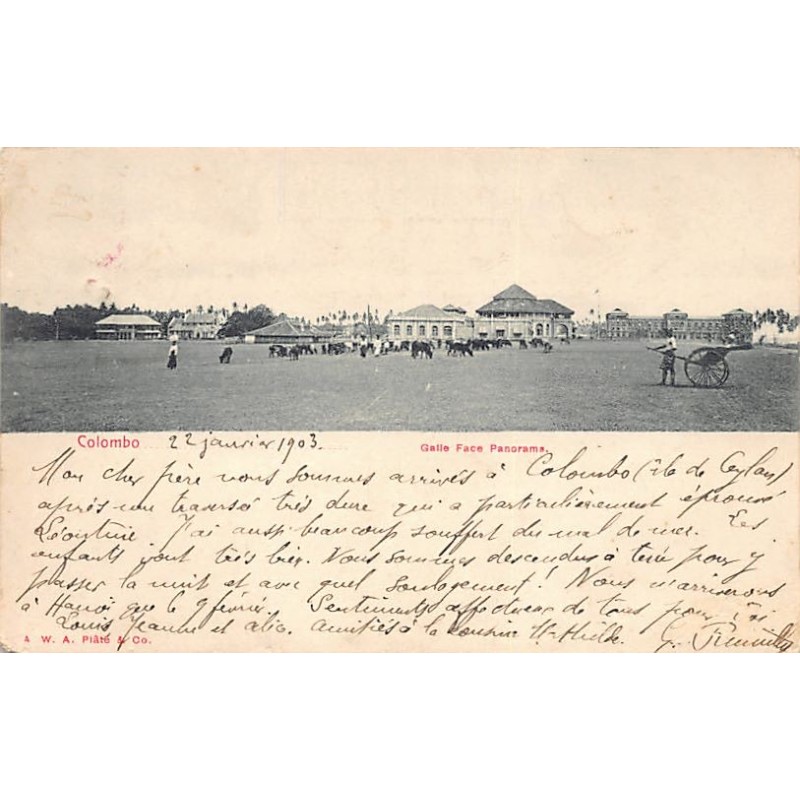 Colombo 22 janvier 1903.
Galle Face Panorama.
Mon cher frère nous sommes arrivés à Colombo (île de Ceylan)
après une traversé très dure qui a particulièrement éprouvé
Léontine J'ai aussi beaucoup souffert du mal de mer. Les
enfants vont très bien. Nous sommes descendus à terre pour y
passer la nuit et avec quel soulagement! Nous n'arriverons
à Hanoï que le 9 février. Sentiments affectueux de tous pour toi
Louis Jeanne et alic. Amitiés à la cousine
& W. A. Plâté & Co.